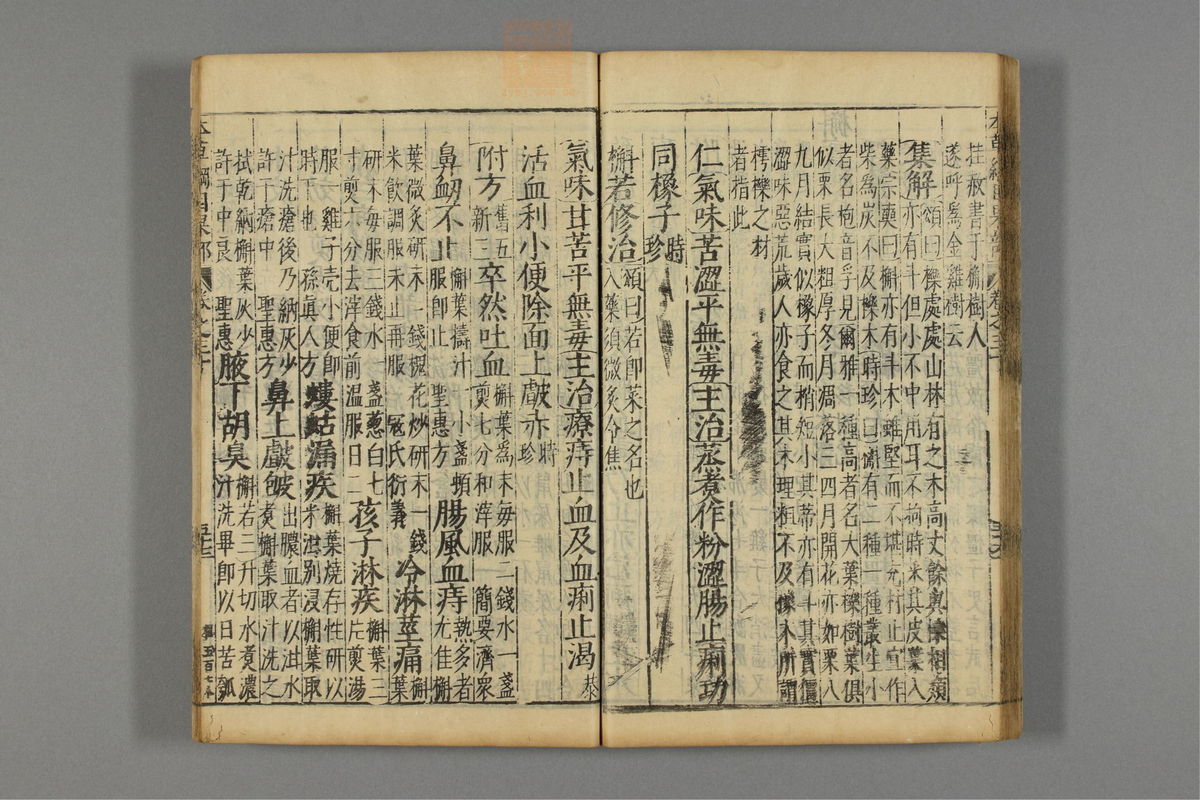 本草綱目果部 卷之三十
挂赦書于槲樹人
遂呼爲金雞樹云
集解頌曰槲處處山林有之木高丈餘與櫟相類
亦有斗但小不中用耳不拘時采其皮葉入
藥宗奭曰槲亦有斗木雖堅而不堪充材止宜作
柴爲炭不及櫟木時珍曰槲有二種一種叢生小
者名枹音孚見爾雅一種高者名大葉櫟樹葉俱
似栗長大粗厚冬月凋落三四月開花亦如栗八
九月結實似橡子而稍短小其蒂亦有斗其實僵
澀味惡荒歲人亦食之其木理粗不及橡木所謂
樗櫟之材
者指此
仁氣味苦澀平無毒主治蒸煮作粉澀腸止痢功
同橡子時珍
槲若修治頌曰若即葉之名也
入藥須微炙令焦
氣味甘苦平無毒主治療痔止血及血痢止渴恭
活血利小便除面上齄赤時珍
附方舊五新三卒然吐血槲葉爲末每服二錢水一盞
煎七分和滓服 簡要濟衆
鼻衄不止槲葉擣汁一小盞頓
服即止 聖惠方腸風血痔熱多者尤佳槲
葉微炙研末一錢槐花炒研末一錢
米飲調服未止再服 寇氏衍義冷淋莖痛槲葉
研末每服三錢水一盞葱白七
寸煎六分去滓食前溫服日二孩子淋疾槲葉三片煎湯
服一雞子壳小便即
時下也 孫眞人方螻蛄漏疾槲葉燒存性研以米泔别浸槲葉取
汁洗瘡後乃納灰少
許于瘡中 聖惠方鼻上齄皰出膿血者以泔水煮槲葉取汁洗之
拭乾納槲葉灰少
許于中良 聖惠腋下胡臭槲若三升切水煮濃汁洗畢即以日苦瓠
本草綱目果部 卷之三十